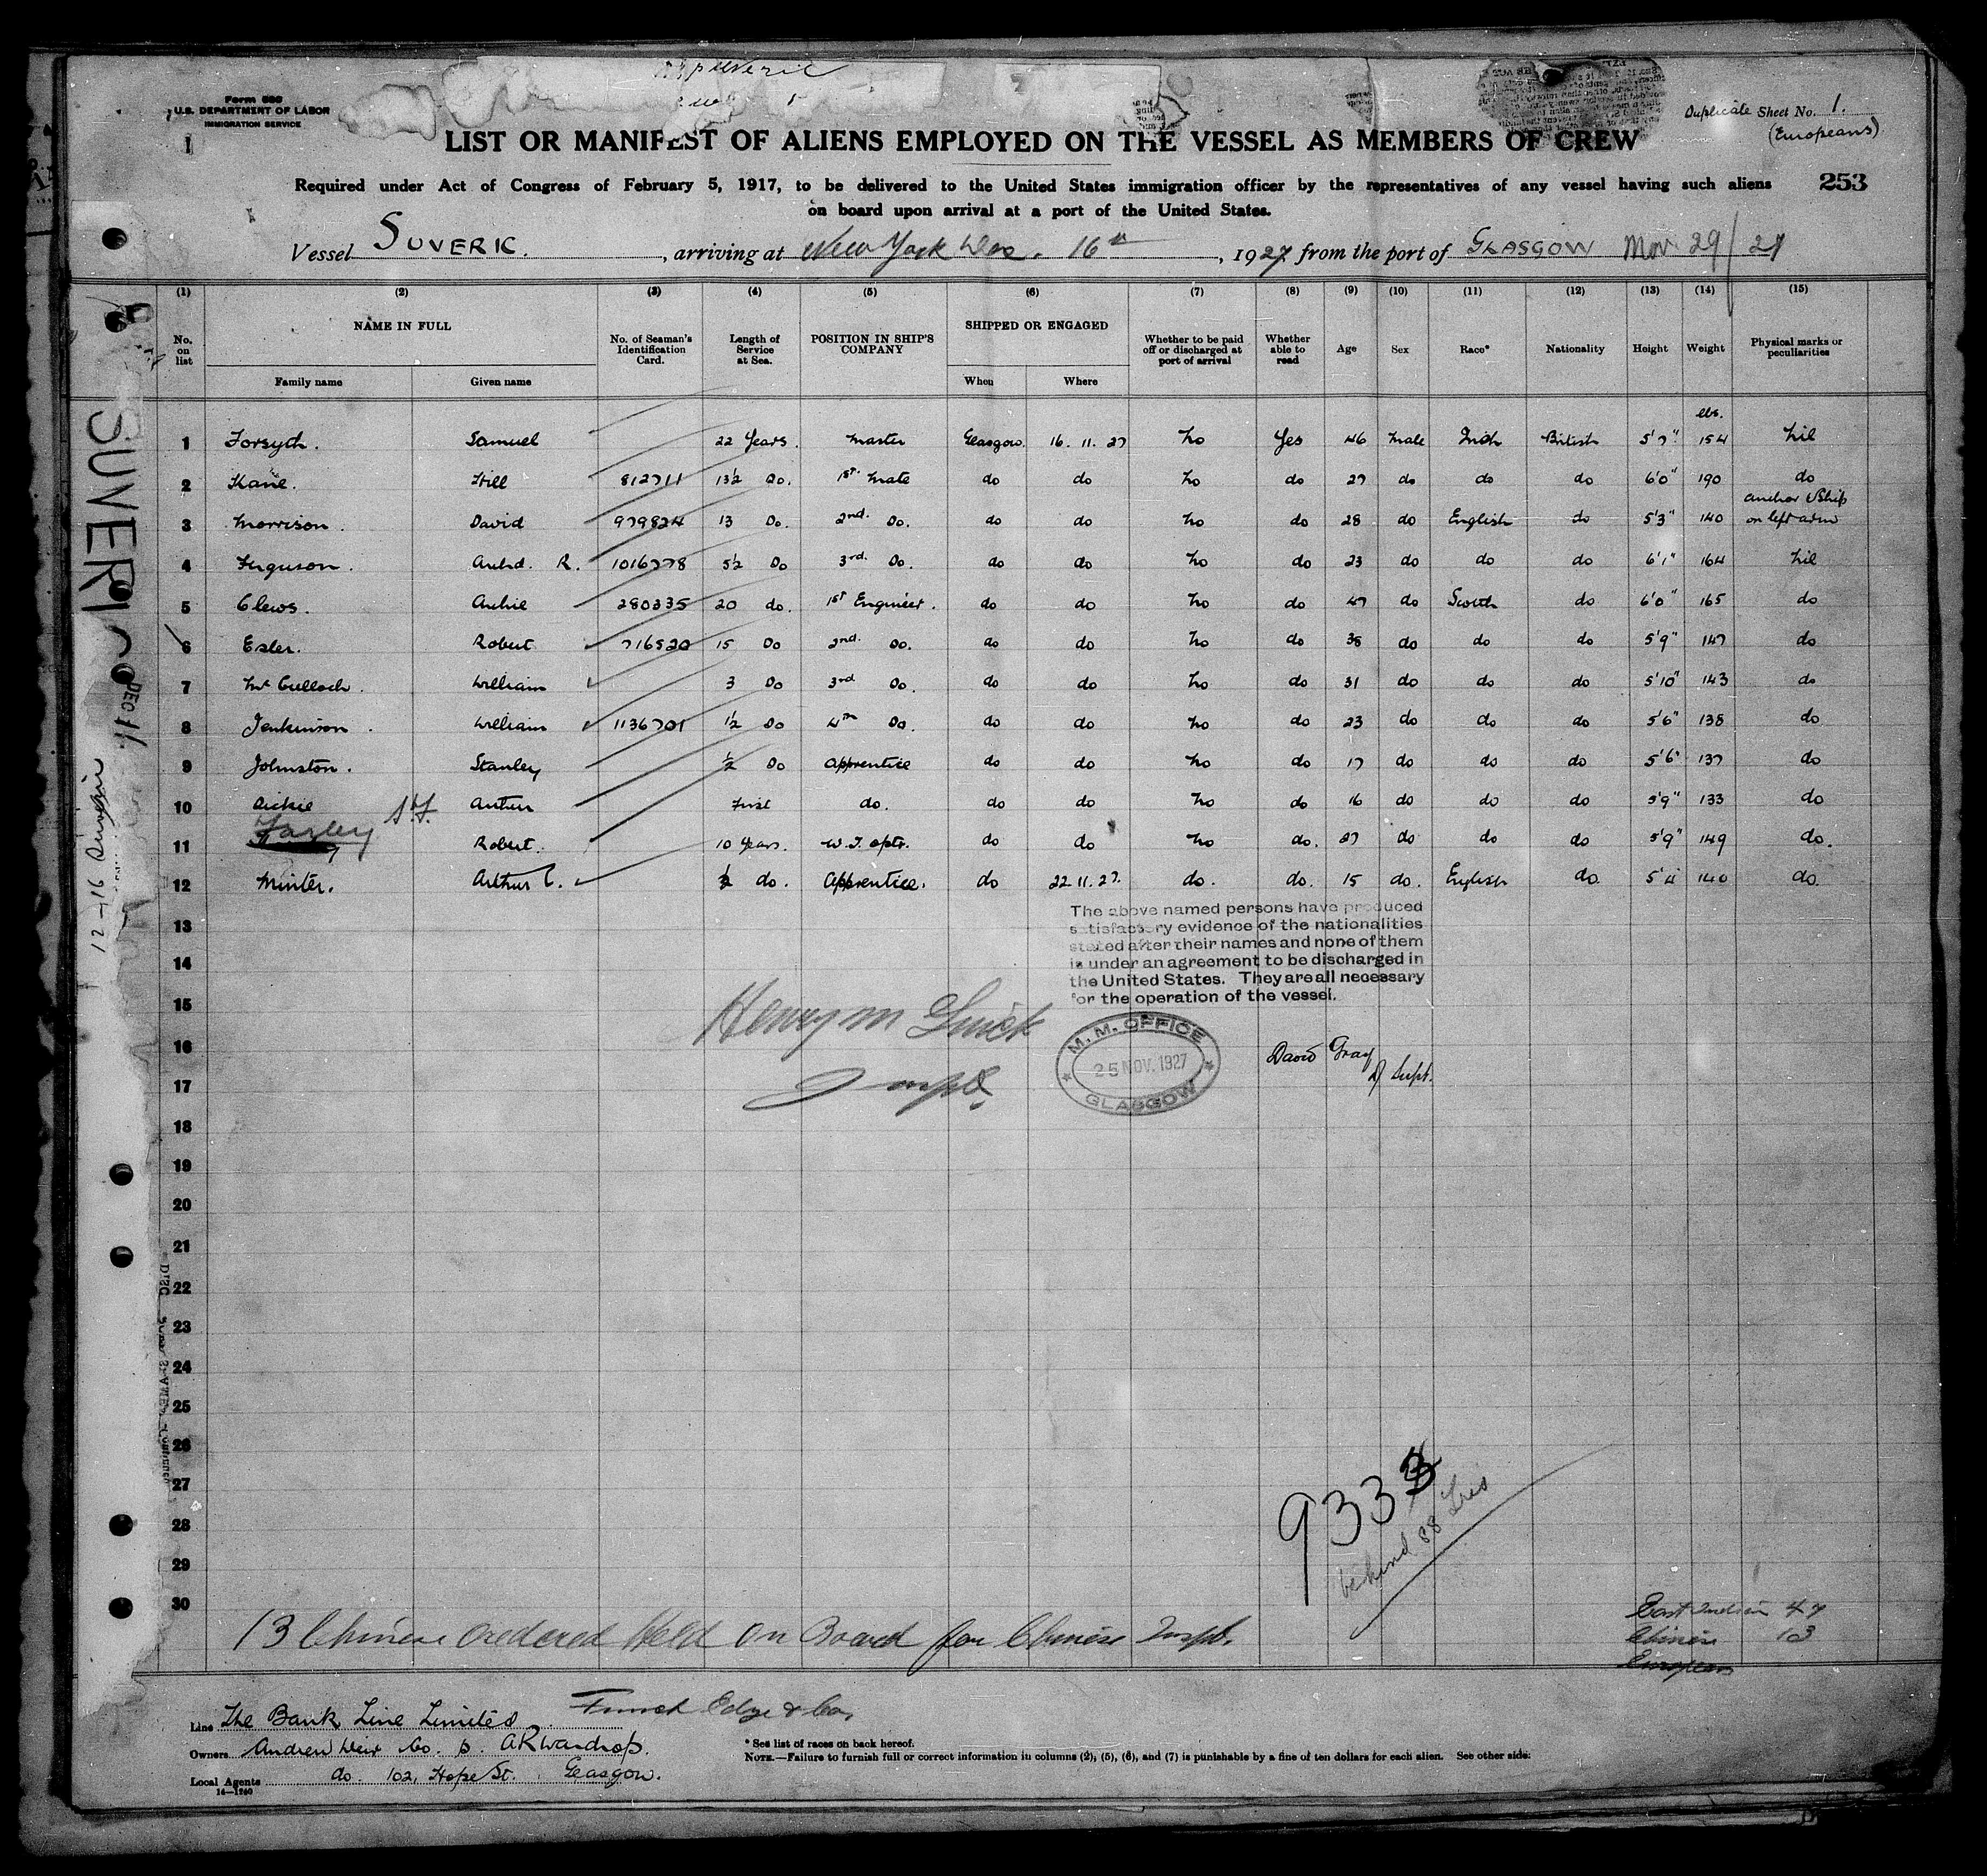 Form 680
U.S. DEPARTMENT OF LABOR
IMMIGRATION SERVICE
Duplicate Sheet No. 1.
(Europeans)
LIST OR MANIFEST OF ALIENS EMPLOYED ON THE VESSEL AS MEMBERS OF CREW
Required under Act of Congress of February 5, 1917, to be delivered to the United States immigration officer by the representatives of any vessel having such aliens
253
on board upon arrival at a port of the United States.
Vessel SUVERIC. , arriving at New York Dec. 16th , 1927 from the port of GLASGOW Nov 29/27
(1) (2) (3) (4) (5) (6) (7) (8) (9) (10) (11) (12) (13) (14) (15)
No. on list NAME IN FULL No. of Seaman's Identification Card. Length of Service at Sea. POSITION IN SHIP'S COMPANY SHIPPED OR ENGAGED Whether to be paid off or discharged at port of arrival Whether able to read Age Sex Race* Nationality Height Weight Physical marks or peculiarities
Family name Given name When Where
lbs.
1 Forsyth. Samuel 22 Years. Master Glasgow. 16.11.27 No Yes 46 Male Irish British 5'7" 154 Nil
2 Kane. Hill 812711 13½ Do. 1st Mate do do No do 27 do do do 6'0" 190 do
3 Morrison. David 979824 13 Do. 2nd. Do. do do No do 28 do English do 5'3" 140 anchor & Ship on left arm
4 Ferguson. Archd. R. 1016778 5½ Do 3rd. Do. do do No do 23 do do do 6'1" 164 Nil
5 Clews. Archie 280335 20 do. 1st Engineer. do do No do 47 do Scotch do 6'0" 165 do
6 Esler. Robert 716520 15 Do 2nd. Do. do do No do 38 do do do 5'9" 147 do
7 Mc Culloch. William 3 Do 3rd Do. do do No do 31 do do do 5'10" 143 do
8 Jenkinson. William 1136701 1½ Do 4th Do. do do No do 23 do do do 5'6" 138 do
9 Johnston. Stanley ½ Do Apprentice do do No do 17 do do do 5'6" 137 do
10 Dickie Arthur First do. do do No do 16 do do do 5'9" 133 do
11 Farley Robert. 10 Years. W.T. optr. do do No do. 27 do do do 5'9" 149 do.
12 Minter. Arthur C. ½ do. Apprentice. do 22.11.27. do. do. 15 do. English do. 5'4 140 do.
The above named persons have produced
satisfactory evidence of the nationalities
stated after their names and none of them
is under an agreement to be discharged in
the United States. They are all necessary
for the operation of the vessel.
13
14
15
16
17
18
19
20
21
22
23
24
25
26
27
28
29
30
Henry M
Inspt.
M. M. OFFICE
25 NOV. 1927
GLASGOW
David Gray
D/ Supt.
933
behind 88
13 Chinese ordered Held on Board for Chinese Inspt.
East Indian 47
Chinese 13
European
Line The Bank Line Limited. Funch Edye & Co.
Owners Andrew Weir Co. p. A R Wardrop.
Local Agents do. 102, Hope St. Glasgow.
14—1240
* See list of races on back hereof.
NOTE.—Failure to furnish full or correct information in columns (2), (5), (6), and (7) is punishable by a fine of ten dollars for each alien. See other side.
SUVERIC
DEC 16
12-16 Suveric